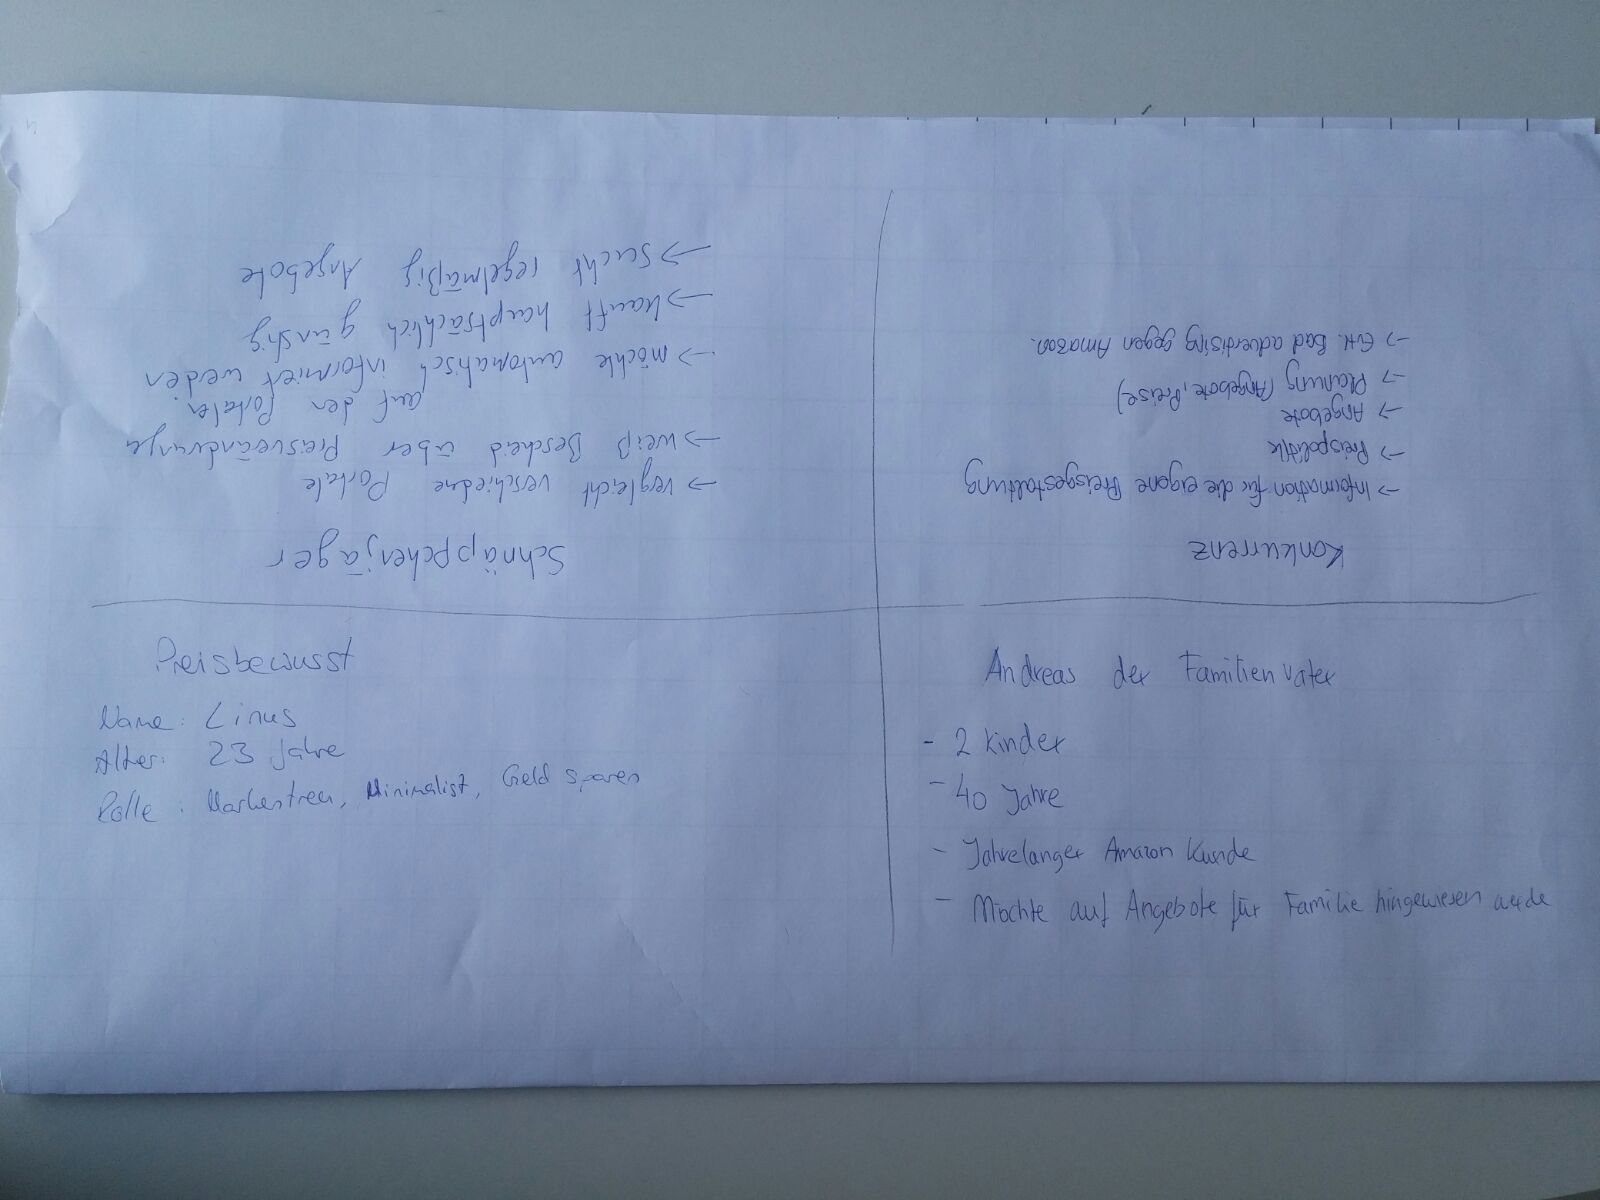 Schnäppchenjäger
→ vergleicht verschiedne Portale
→ weiß Bescheid über Preisveändrunge
auf den Portalen
→ möchte automatisch informiert werden
→ kauft hauptsächlich günstig
→ sucht regelmäßig Angebote
Konkurrenz
→ Information für die eigene Preisgestaltung
→ Preispolitik
→ Angebote
→ Planung (Angebote, Preise)
→ Evtl. Bad advertising gegen Amazon.
Preisbewusst
Name: Linus
Alter: 23 Jahre
Rolle: Markentreu, Minimalist, Geld sparen
Andreas der Familienvater
- 2 Kinder
- 40 Jahre
- Jahrelanger Amazon Kunde
- Möchte auf Angebote für Familie hingewiesen